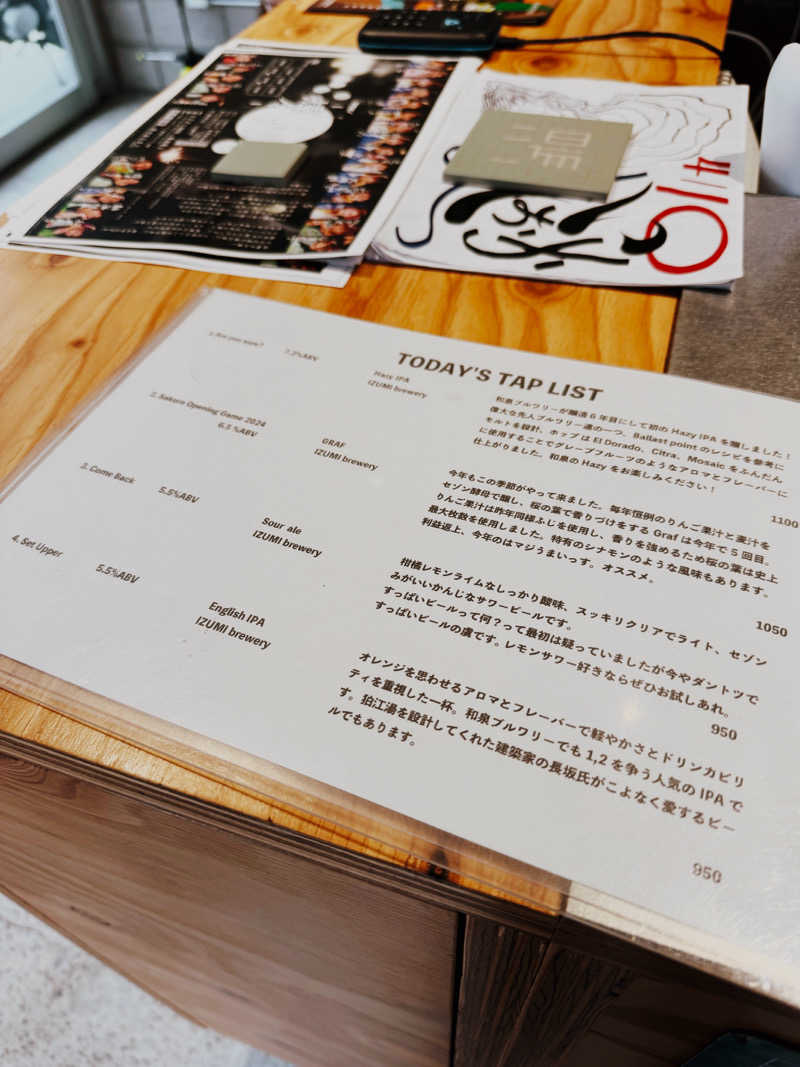 TODAY'S TAP LIST
1. Are you sure?
7.2%ABV
Hazy IPA
IZUMI brewery
和泉ブルワリーが醸造6年目にして初の Hazy IPA を醸しました！
偉大な先人ブルワリー達の一つ、Ballast point のレシピを参考に
モルトを設計、ホップは El Dorado、Citra、Mosaic をふんだん
に使用することでグレープフルーツのようなアロマとフレーバーに
仕上がりました。和泉の Hazy をお楽しみください！
1100
2. Sakura Opening Game 2024
6.5%ABV
GRAF
IZUMI brewery
今年もこの季節がやって来ました。毎年恒例のりんご果汁と麦汁を
セゾン酵母で醸し、桜の葉で香りづけをする Graf は今年で5回目。
りんご果汁は昨年同様ふじを使用し、香りを強めるため桜の葉は史上
最大枚数を使用しました。特有のシナモンのような風味もあります。
利益返上、今年のはマジうまいっす。オススメ。
1050
3. Come Back
5.5%ABV
Sour ale
IZUMI brewery
柑橘レモンライムなしっかり酸味、スッキリクリアでライト、セゾン
みがいいかんじなサワービールです。
すっぱいビールって何？って最初は疑っていましたが今やダントツで
すっぱいビールの虜です。レモンサワー好きならぜひお試しあれ。
950
4. Set Upper
5.5%ABV
English IPA
IZUMI brewery
オレンジを思わせるアロマとフレーバーで軽やかさとドリンカビリ
ティを重視した一杯。和泉ブルワリーでも 1,2 を争う人気の IPA で
す。狛江湯を設計してくれた建築家の長坂氏がこよなく愛するビー
ルでもあります。
950
湯